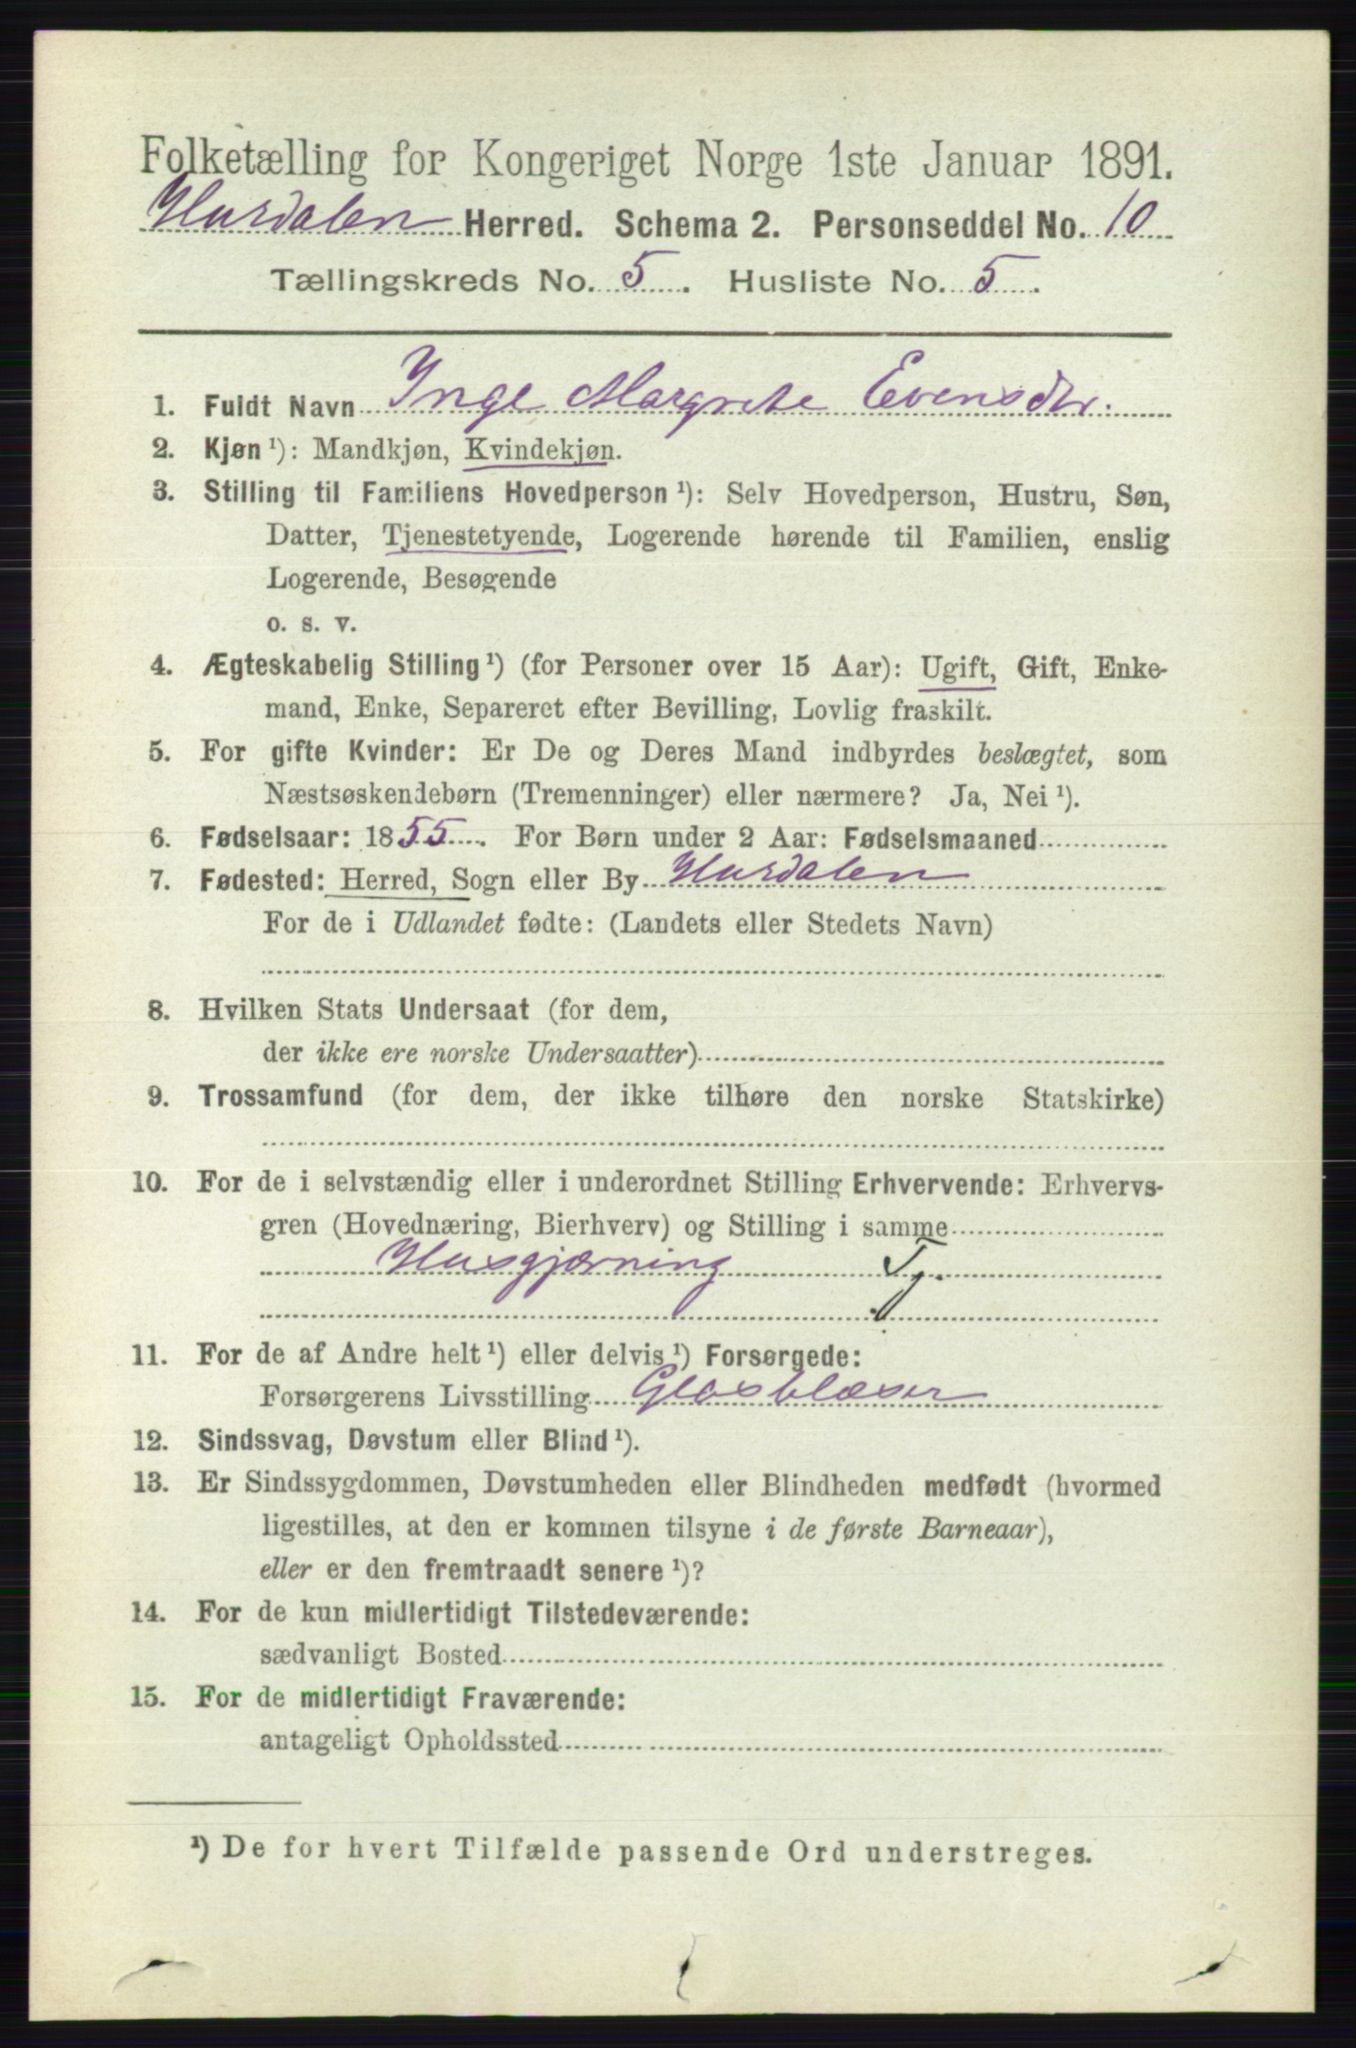 Folketælling for Kongeriget Norge 1ste Januar 1891.
Hurdalen Herred. Schema 2. Personseddel No. 10
Tællingskreds No. 5. Husliste No. 5.
1. Fuldt Navn Inge Margrete Evensdtr.
2. Kjøn ¹): Mandkjøn, Kvindekjøn.
3. Stilling til Familiens Hovedperson ¹): Selv Hovedperson, Hustru, Søn,
Datter, Tjenestetyende, Logerende hørende til Familien, enslig
Logerende, Besøgende
o. s. v.
4. Ægteskabelig Stilling ¹) (for Personer over 15 Aar): Ugift, Gift, Enke-
mand, Enke, Separeret efter Bevilling, Lovlig fraskilt.
5. For gifte Kvinder: Er De og Deres Mand indbyrdes beslægtet, som
Næstsøskendebørn (Tremenninger) eller nærmere? Ja, Nei ¹).
6. Fødselsaar: 1855. For Børn under 2 Aar: Fødselsmaaned
7. Fødested: Herred, Sogn eller By Hurdalen
For de i Udlandet fødte: (Landets eller Stedets Navn)
8. Hvilken Stats Undersaat (for dem,
der ikke ere norske Undersaatter)
9. Trossamfund (for dem, der ikke tilhøre den norske Statskirke)
10. For de i selvstændig eller i underordnet Stilling Erhvervende: Erhvervs-
gren (Hovednæring, Bierhverv) og Stilling i samme
Husgjærning Tj.
11. For de af Andre helt ¹) eller delvis ¹) Forsørgede:
Forsørgerens Livsstilling Glasblæser
12. Sindssvag, Døvstum eller Blind ¹).
13. Er Sindssygdommen, Døvstumheden eller Blindheden medfødt (hvormed
ligestilles, at den er kommen tilsyne i de første Barneaar),
eller er den fremtraadt senere ¹)?
14. For de kun midlertidigt Tilstedeværende:
sædvanligt Bosted
15. For de midlertidigt Fraværende:
antageligt Opholdssted
¹) De for hvert Tilfælde passende Ord understreges.